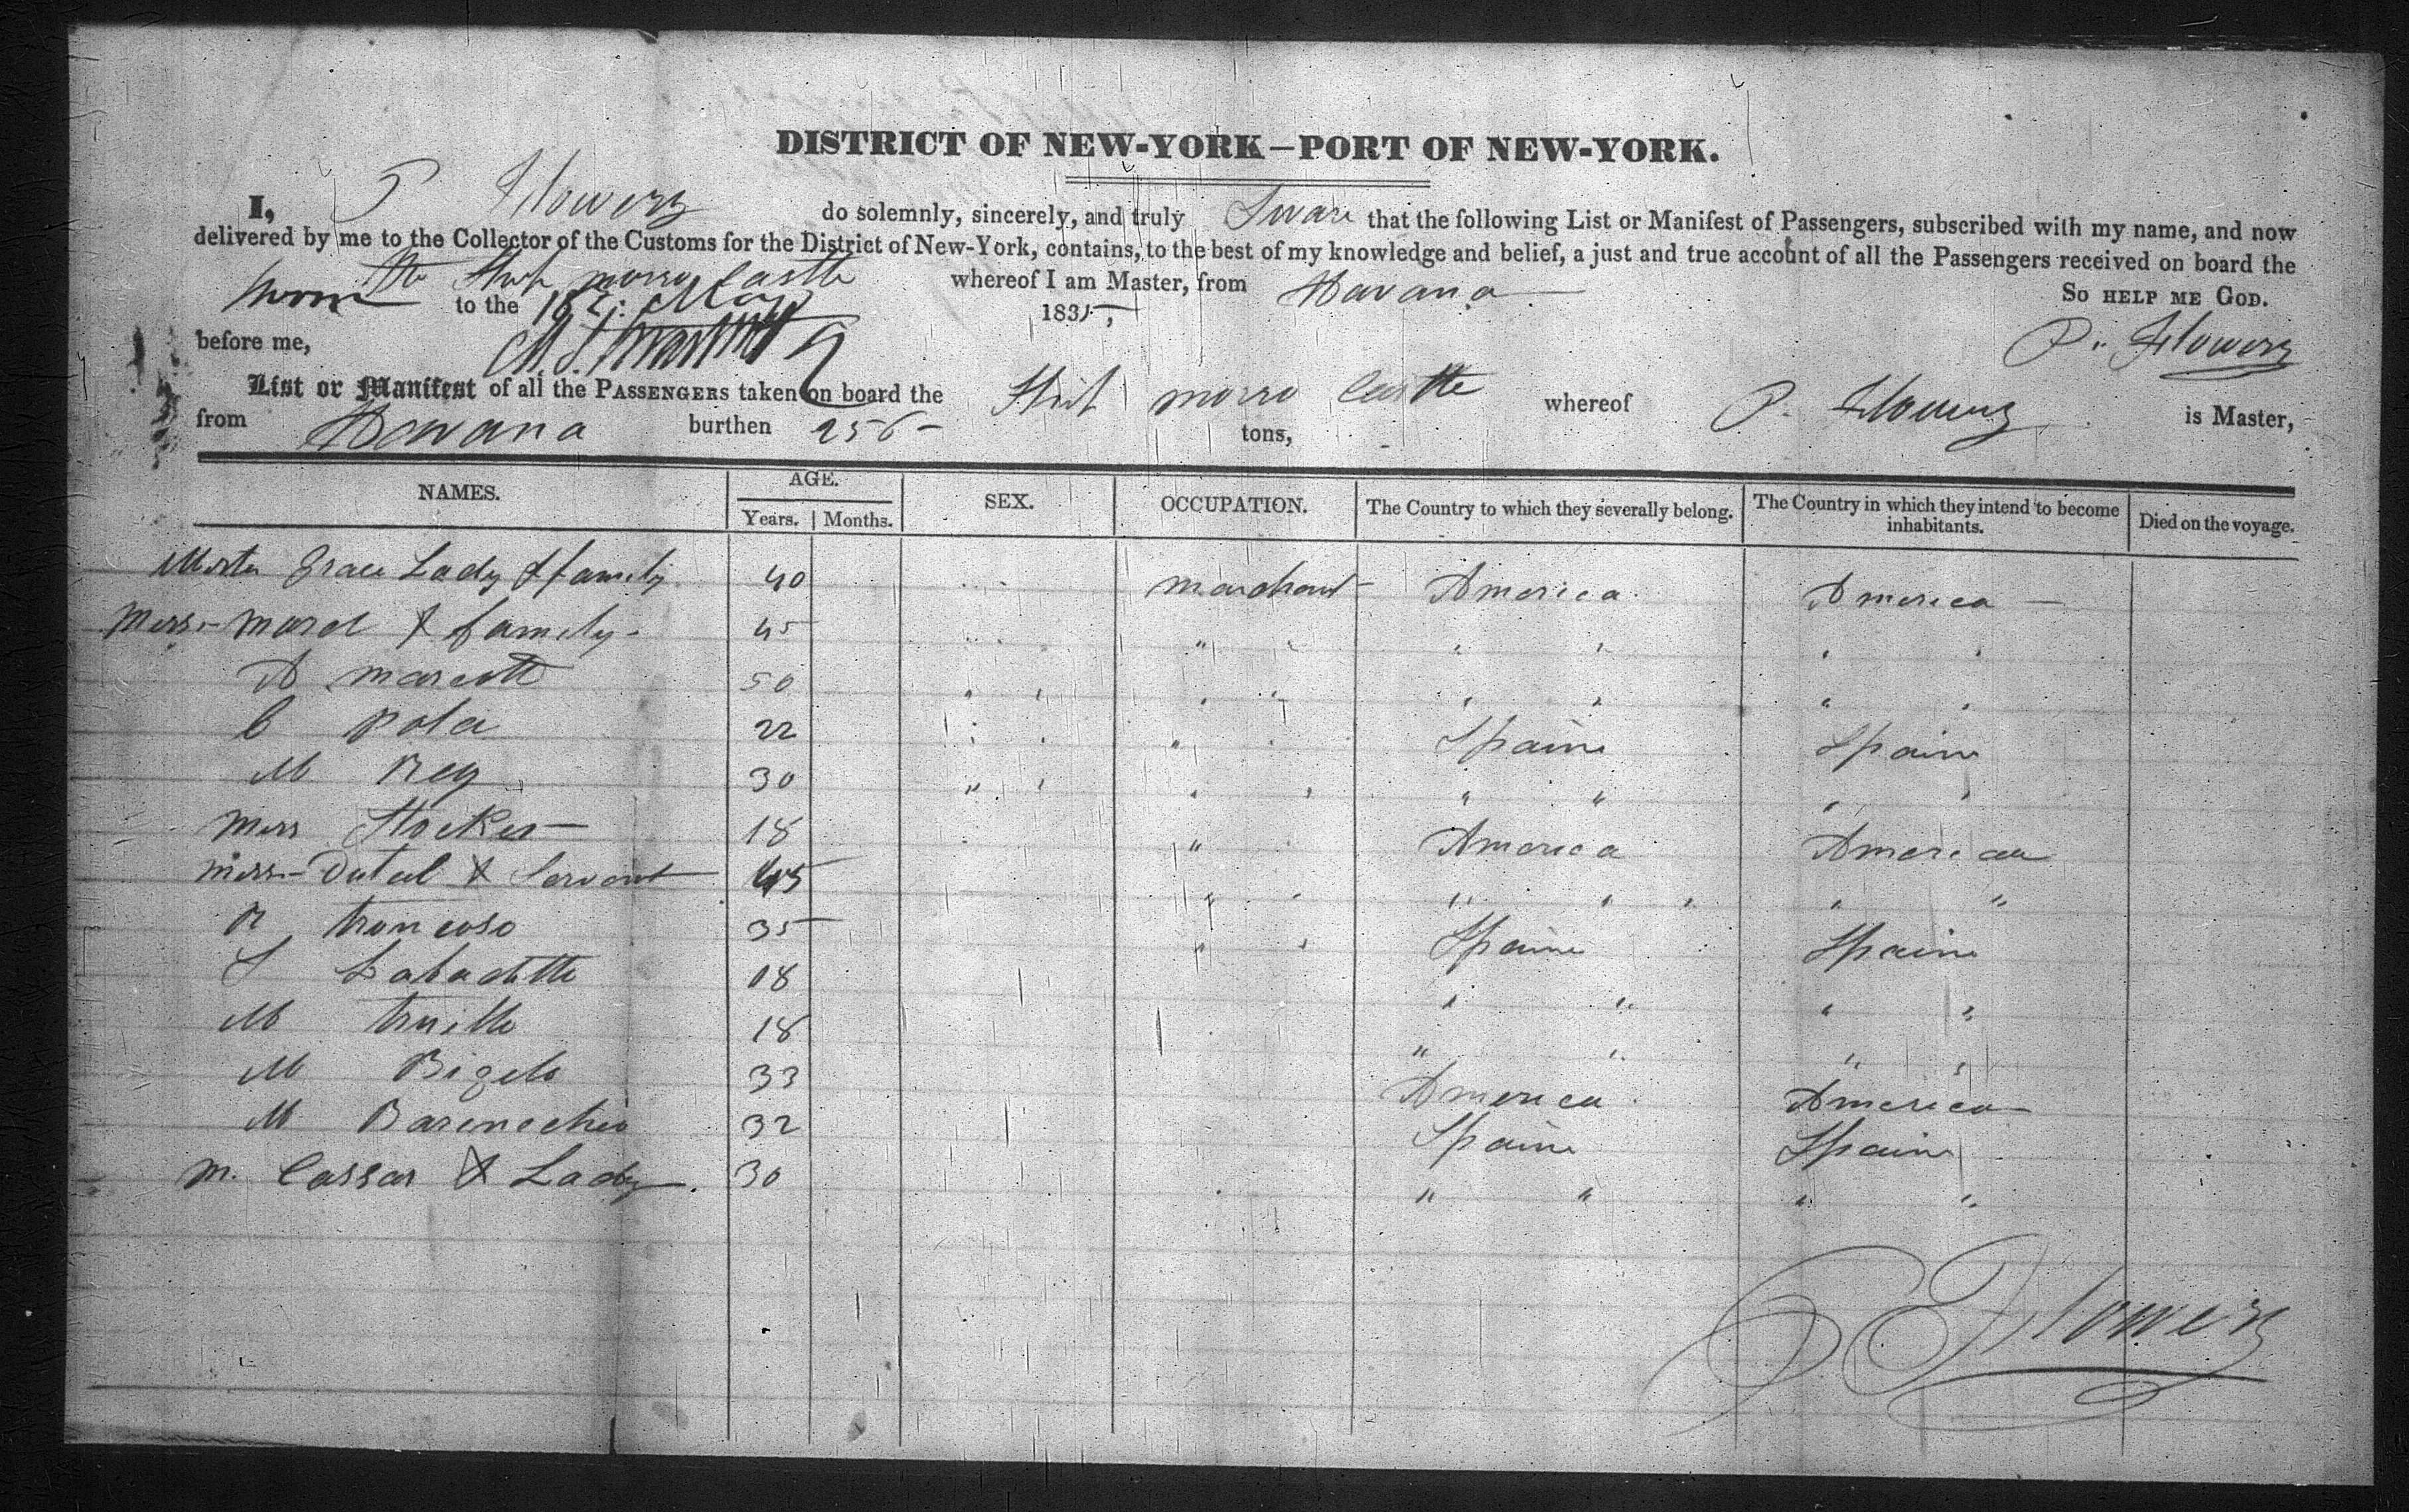 DISTRICT OF NEW-YORK—PORT OF NEW-YORK.
I, P Flowers do solemnly, sincerely, and truly Sware that the following List or Manifest of Passengers, subscribed with my name, and now
delivered by me to the Collector of the Customs for the District of New-York, contains, to the best of my knowledge and belief, a just and true account of all the Passengers received on board the
the Ship morro Castle whereof I am Master, from Havana
Sworn to the 18 May 1835, So HELP ME GOD.
before me, P. Flowers
List or Manifest of all the PASSENGERS taken on board the Ship morro Castle whereof P. Flowers is Master,
from Havana burthen 256 tons,
NAMES. AGE. SEX. OCCUPATION. The Country to which they severally belong. The Country in which they intend to become inhabitants. Died on the voyage.
Years. Months.
Grace Lady & family 40 marchant America America
morel & family 45 " " " " " "
A marcott 50 " " " " " " " "
C Pola 22 " " " Spaine Spain
M Rey 30 " " " " " " " "
miss Stocker 18 " America America
Dutul & Servant 45 " " " " " " "
R troncoso 35 " " Spaine Spaine
S Labadette 18 " " " "
M truille 18 " " " "
M Bigelo 33 America America
M Barenechio 32 Spaine Spain
M. Cassar & Lady 30 " " " "
P Flowers